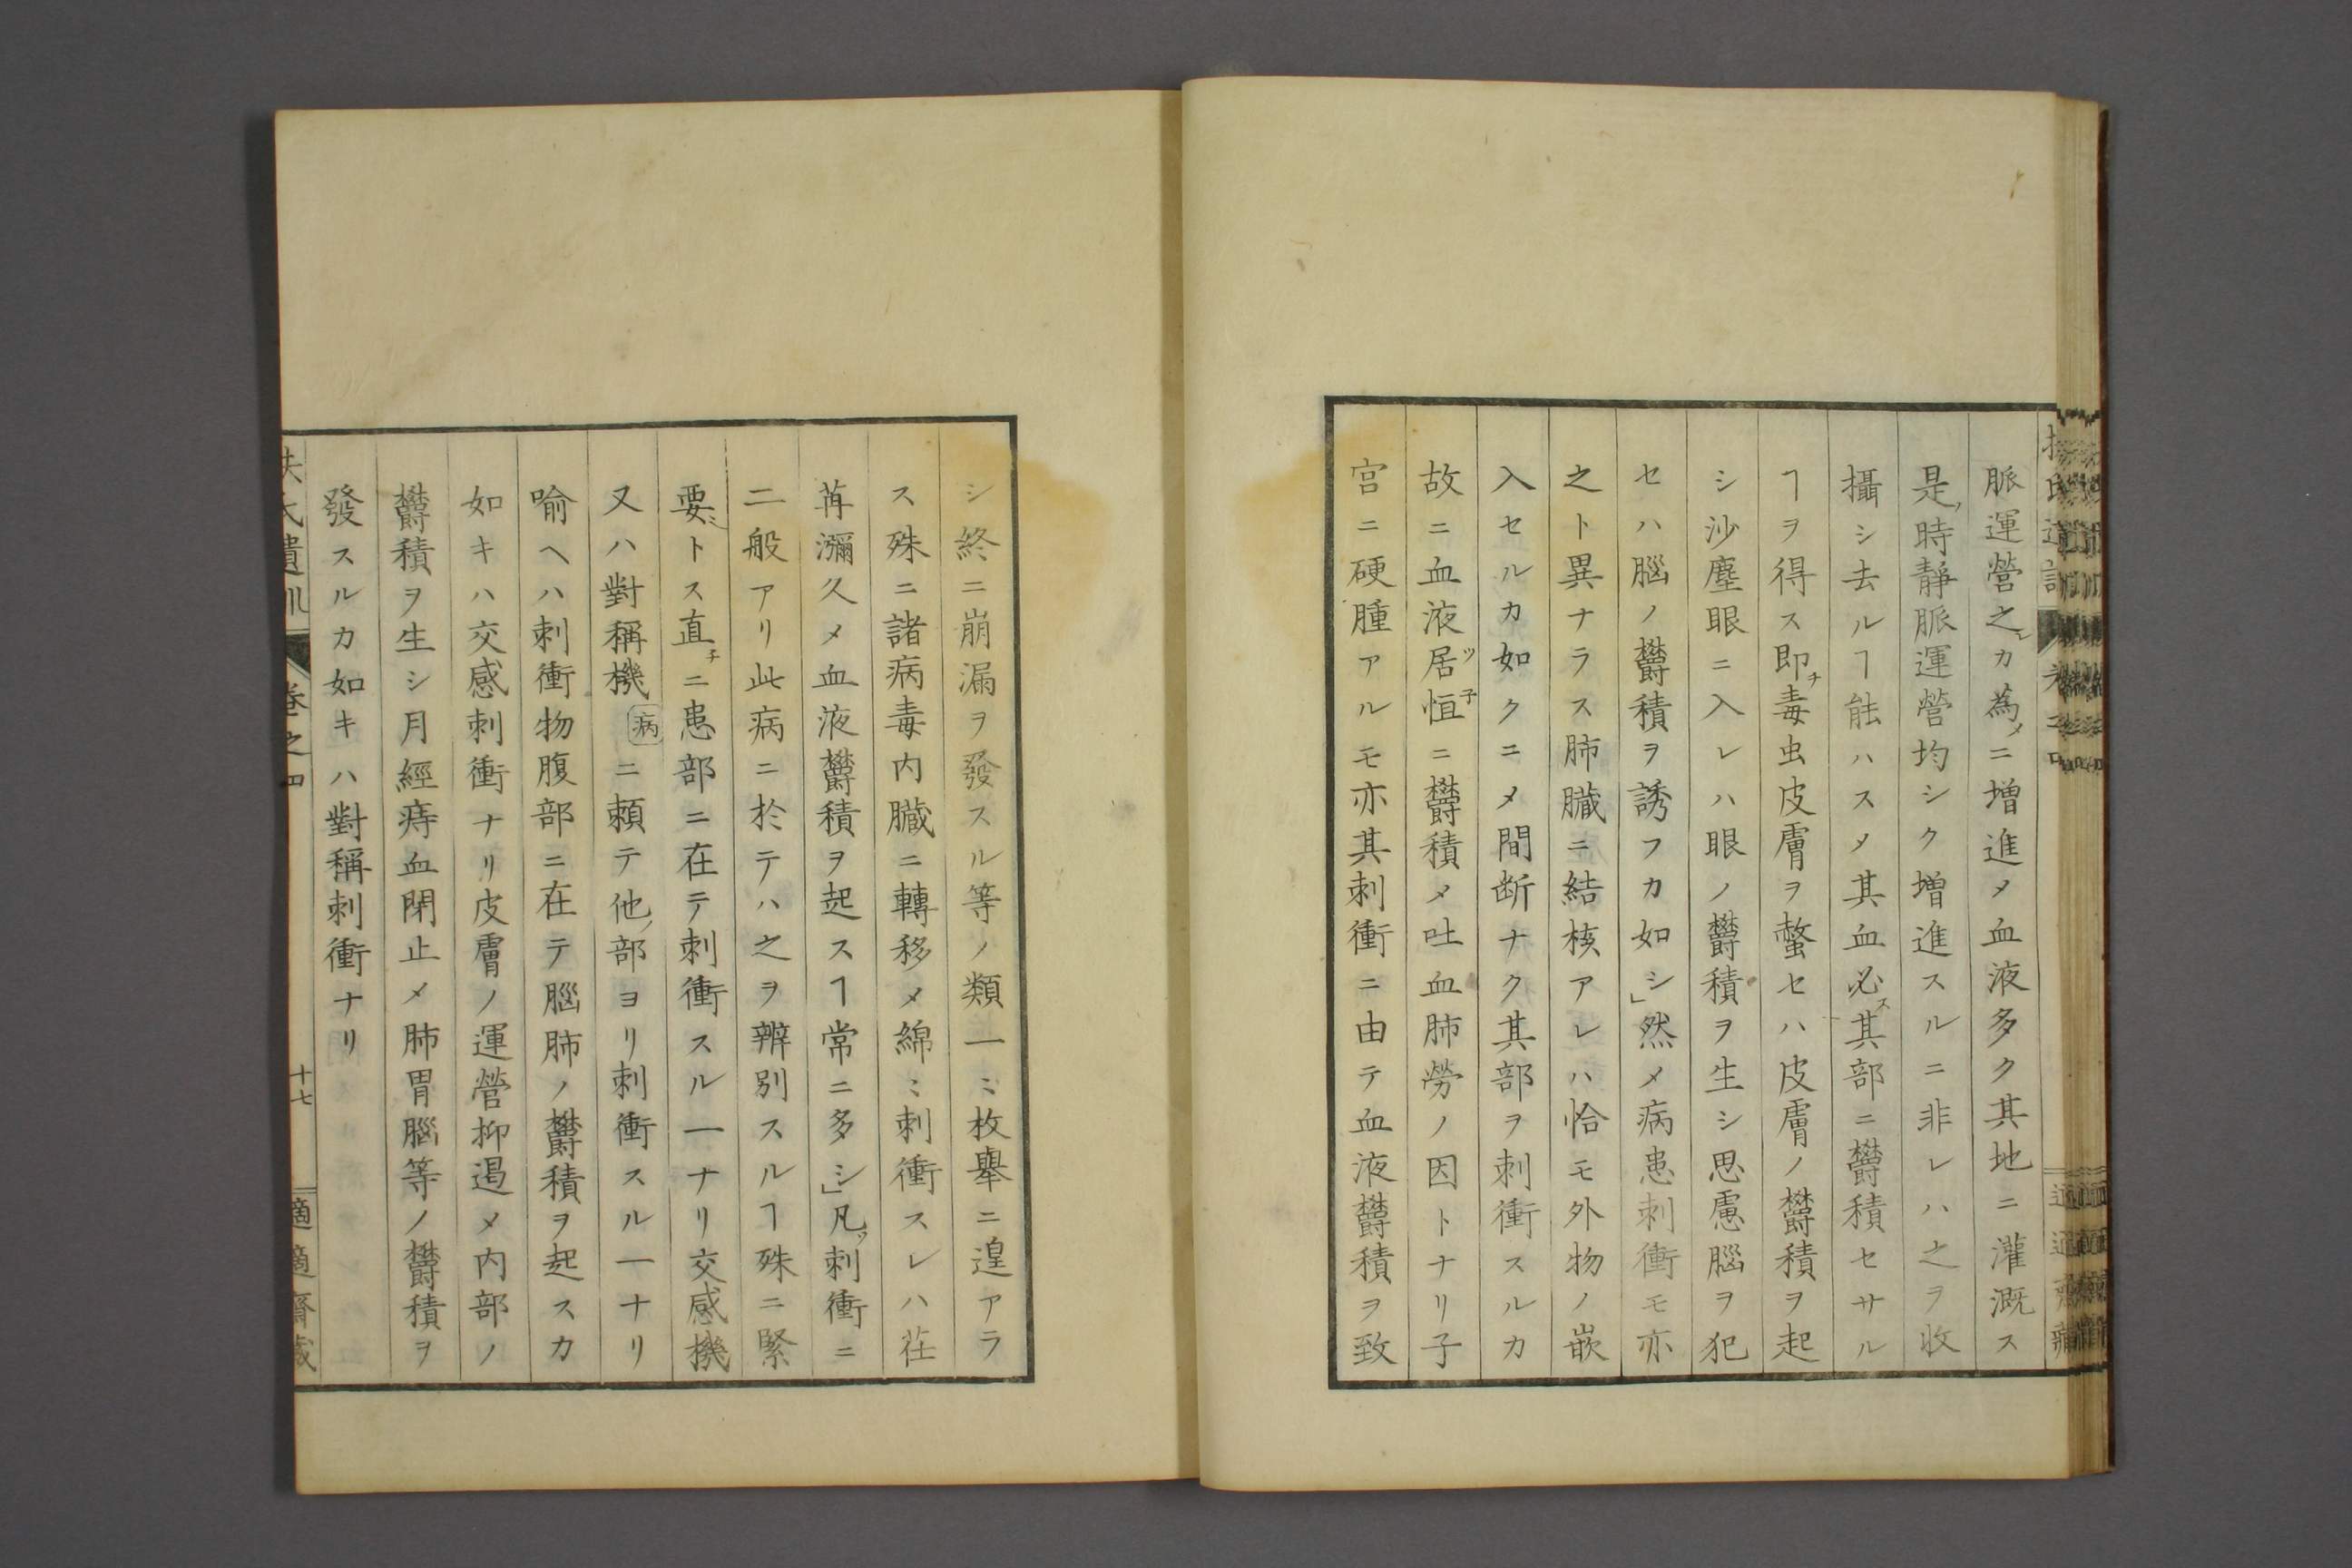 脈運營之レカ為メニ増進メ血液多ク其地ニ灌溉ス
是ノ時靜脈運營均シク増進スルニ非レハ之ヲ收
攝シ去ルヿ能ハスメ其血必ス其部ニ欝積セサル
ヿヲ得ス即チ毒虫皮膚ヲ螫セハ皮膚ノ欝積ヲ起
シ沙塵眼ニ入レハ眼ノ欝積ヲ生シ思慮腦ヲ犯
セハ腦ノ欝積ヲ誘フカ如シ」然メ病患刺衝モ亦
之ト異ナラス肺臓ニ結核アレハ恰モ外物ノ嵌
入セルカ如クニメ間断ナク其部ヲ刺衝スルカ
故ニ血液居ツ恒子ニ欝積メ吐血肺勞ノ因トナリ子
宮ニ硬腫アルモ亦其刺衝ニ由テ血液欝積ヲ致
シ終ニ崩漏ヲ發スル等ノ類一〻枚舉ニ遑アラ
ス殊ニ諸病毒内臓ニ轉移メ綿〻刺衝スレハ荏
苒瀰久メ血液欝積ヲ起スヿ常ニ多シ」凡ソ刺衝ニ
二般アリ此病ニ於テハ之ヲ辨別スルヿ殊ニ緊
要ミトス直チニ患部ニ在テ刺衝スル一ナリ交感機
又ハ對稱機病ニ頼テ他ノ部ヨリ刺衝スル一ナリ
喻ヘハ刺衝物腹部ニ在テ腦肺ノ欝積ヲ起スカ
如キハ交感刺衝ナリ皮膚ノ運營抑遏メ内部ノ
欝積ヲ生シ月經痔血閉止メ肺胃腦等ノ欝積ヲ
發スルカ如キハ對稱刺衝ナリ
扶氏遺訓 卷之四 十七 適適齋藏